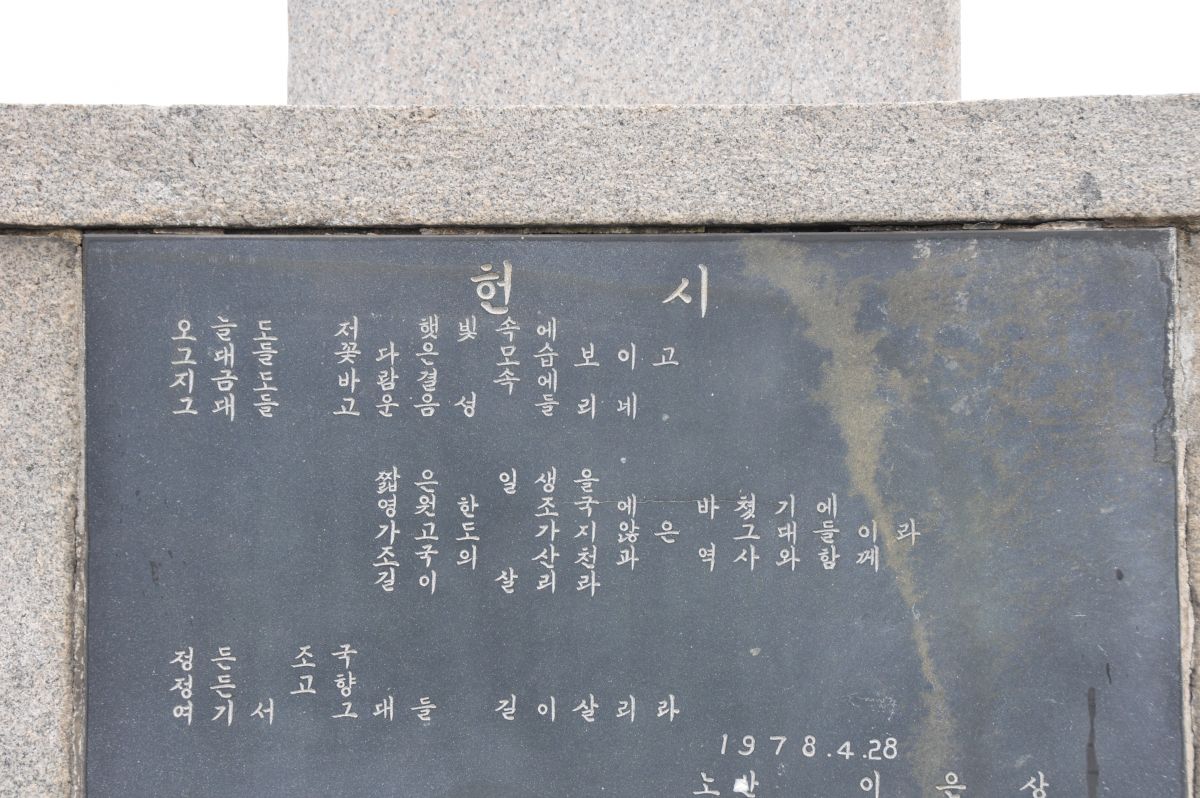 헌 시
오늘도 저 햇빛 속에
그대들 꽃다운 모습 보이고
지금도 바람결 속에
그대들 고운 음성 들리네
짧은 일생을
영원한 조국에 바쳤기에
가고도 가지 않은 그대들이라
조국의 산천과 역사와 함께
길이 살리라
정든 조국
정든 고향
여기서 그대들 길이살리라
1978.4.28
노산 이은상